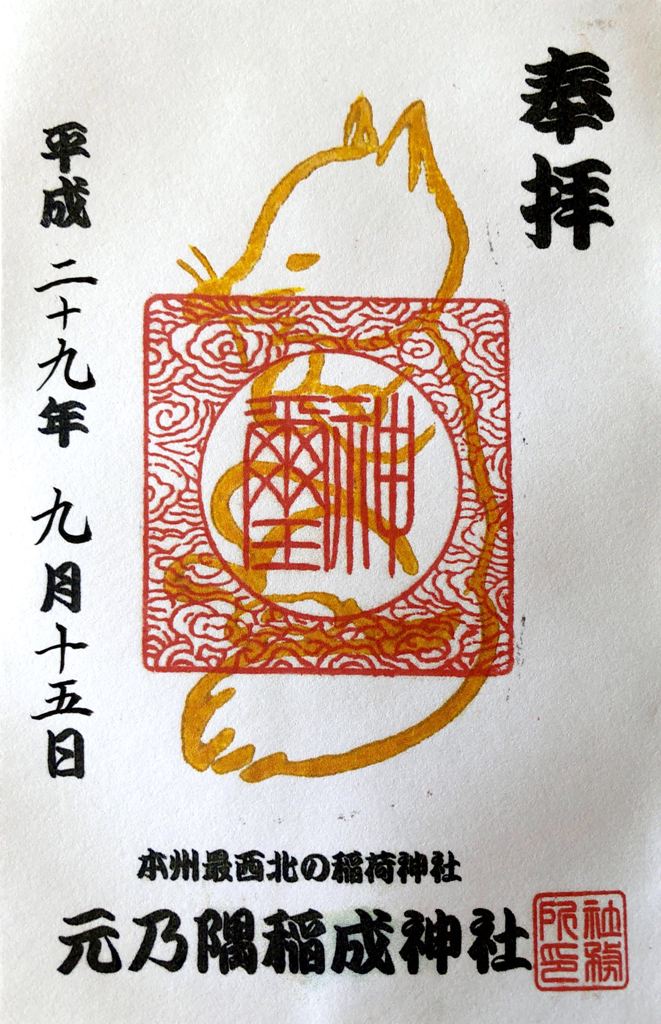 奉拝
神璽
平成 二十九年 九月十五日
本州最西北の稲荷神社
元乃隅稲成神社
社務所印